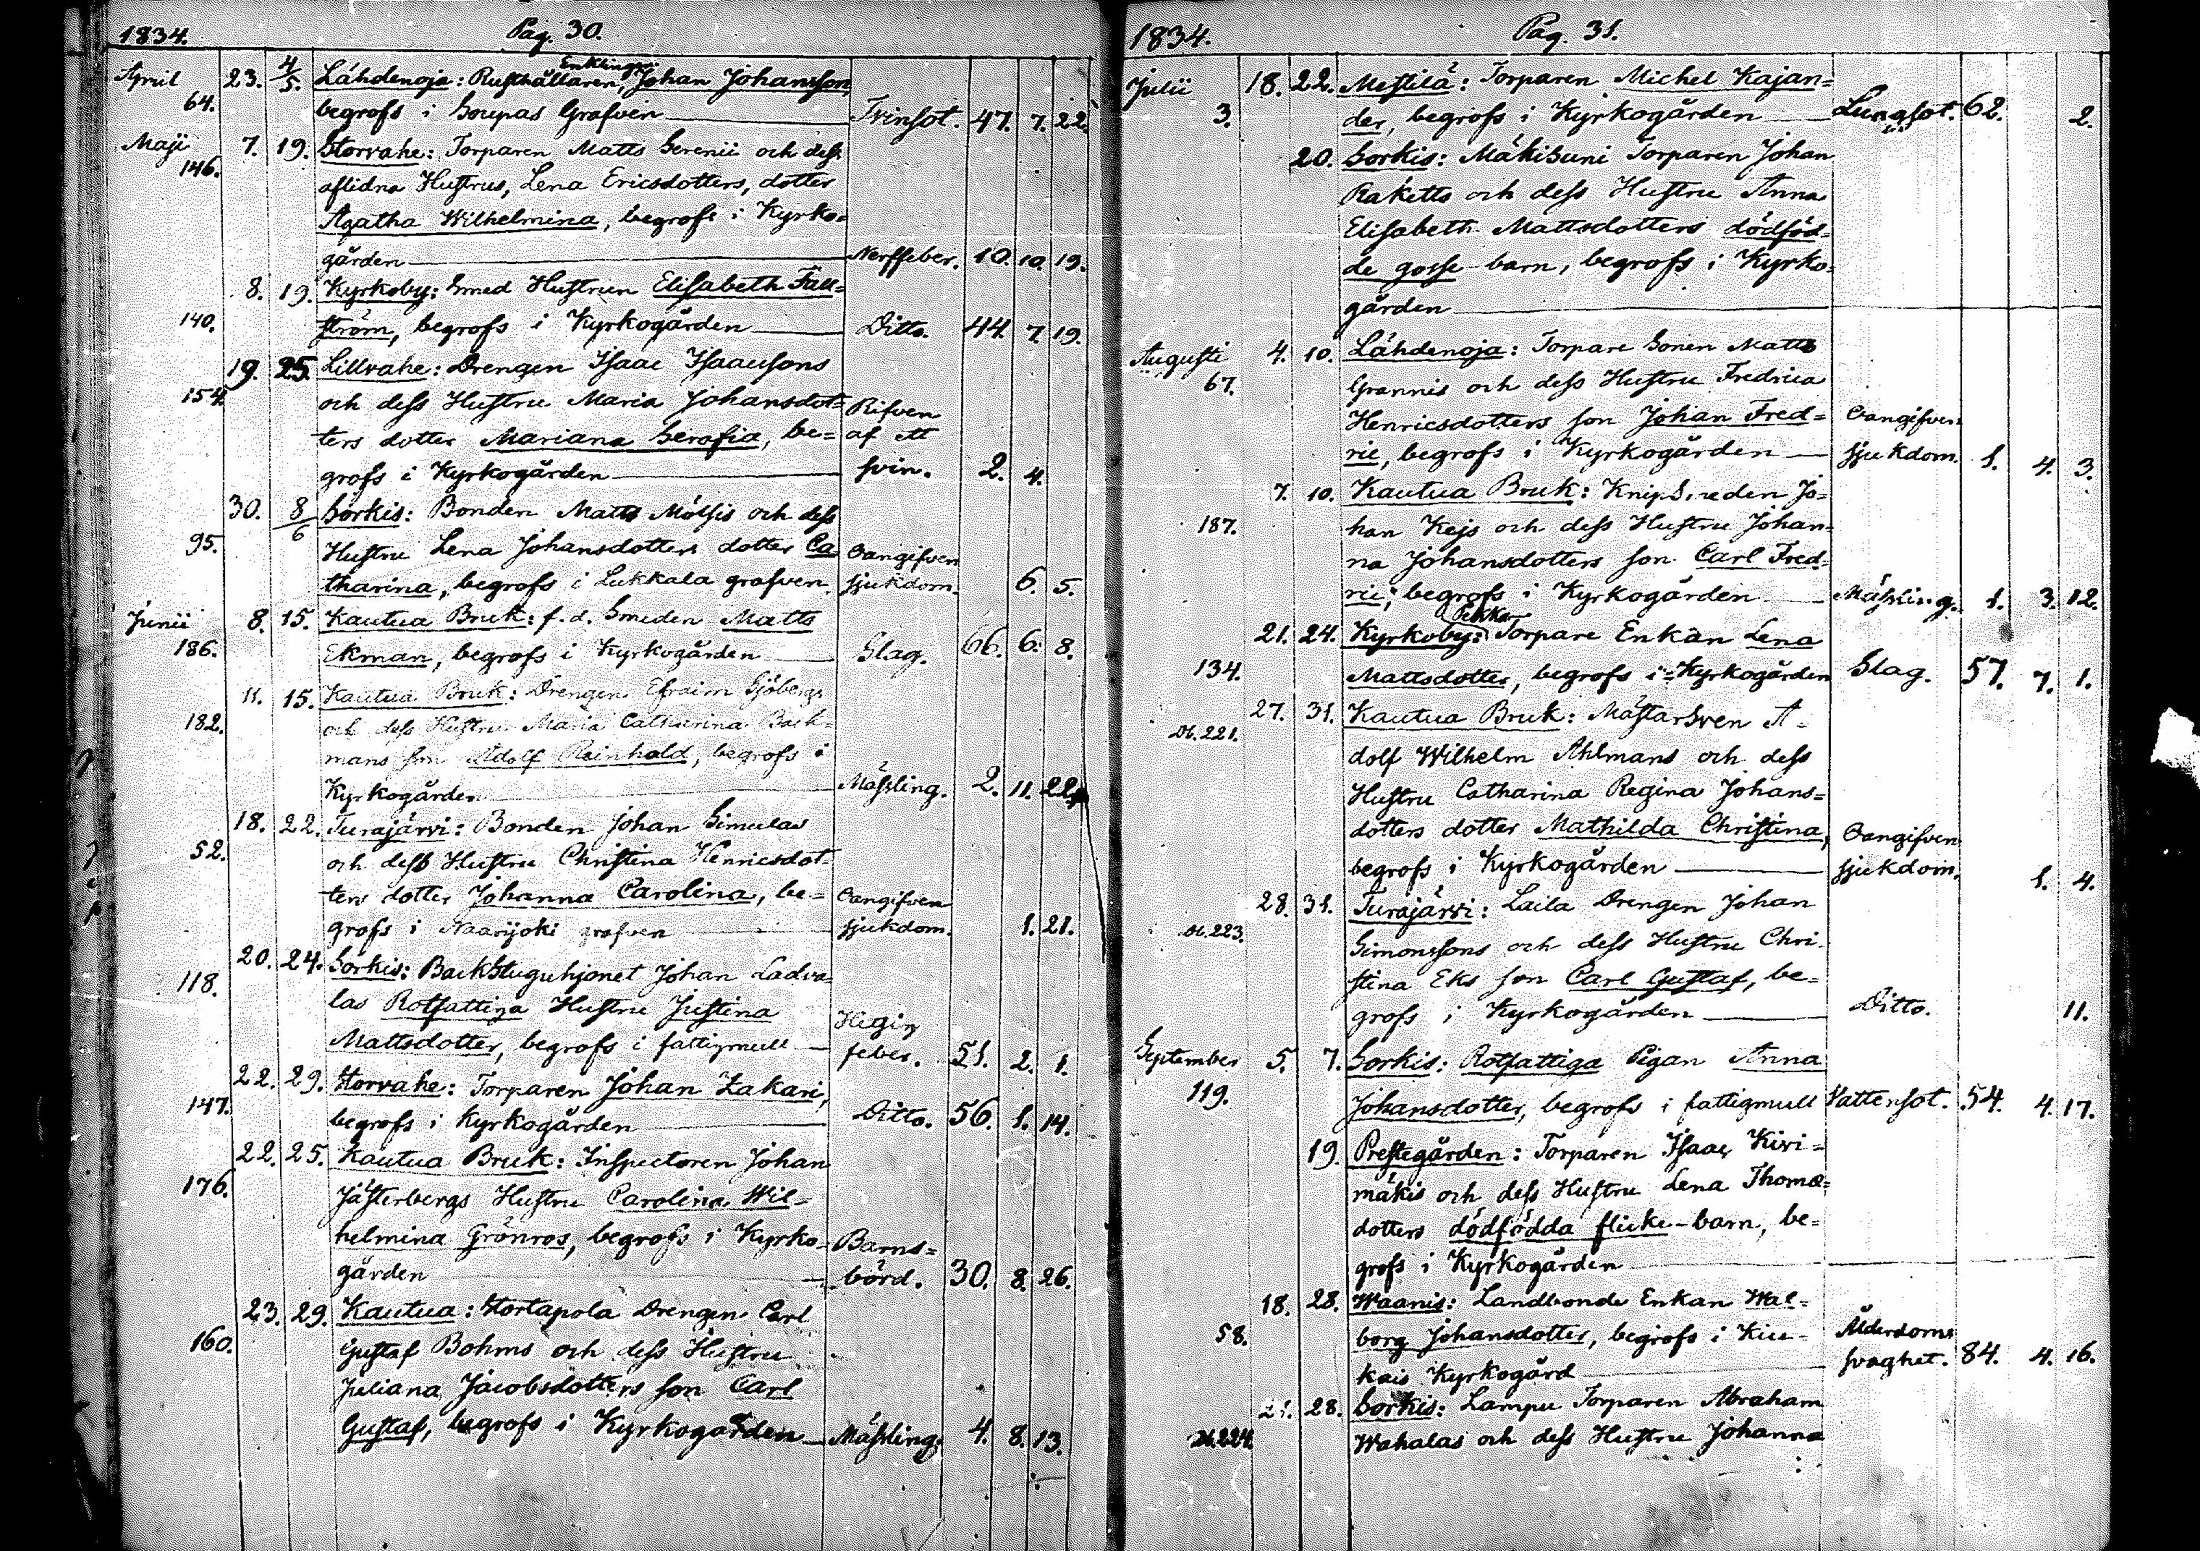 1834. Pag. 30.
April 23. 4/5. Lähdenoja: Rusthållaren, Enklingen Johan Johansson,
64. begrofs i Soupas Grafven Tvinsot. 47. 7. 22.
Maji 7. 19. Storvahe: Torparen Matts Serenii och dess
146. aflidna Hustrus, Lena Ericsdotters, dotter
Agatha Wilhelmina, begrofs i Kyrko=
gården Nerffeber. 10. 10. 19.
8. 19. Kyrkoby: Smed Hustrun Elisabeth Fall=
140. ström, begrofs i Kyrkogården Ditto. 44. 7. 19.
19. 25. Lillvahe: Drengen Isaac Isaacsons
154. och dess Hustru Maria Johansdot= Rifven
ters dotter Mariana Serafia, be= af ett
grofs i Kyrkogården svin. 2. 4.
30. 8/6 Sorkis: Bonden Matts Mölsis och dess
95. Hustru Lena Johansdotters dotter Ca Oangifven
tharina, begrofs i Lukkala grafven. sjukdom. 6. 5.
Junii 8. 15. Kautua Bruk: f.d. Smeden Matts
186. Ekman, begrofs i Kyrkogården Slag. 66. 6. 8.
11. 15. Kautua Bruk: Drengen Efraim Sjöbergs
182. och dess Hustru Maria Catharina Back=
mans son Adolf Reinhold, begrofs i
Kyrkogården Mässling. 2. 11. 22.
18. 22. Turajärvi: Bonden Johan Simulas
52. och dess Hustru Christina Henricsdot=
ters dotter Johanna Carolina, be= Oangifven
grofs i Naarijoki grafven sjukdom. 1. 21.
20. 24. Sorkis: Backstuguhjonet Johan Ladva=
118. las Rotfattiga Hustru Justina Hegig
Mattsdotter, begrofs i fattigmull feber. 51. 2. 1.
22. 29. Storvahe: Torparen Johan Zakari,
147. begrofs i Kyrkogården Ditto. 56. 1. 14.
22. 25. Kautua Bruk: Inspectoren Johan
176. Jästerbergs Hustru Carolina Wil=
helmina Grönros, begrofs i Kyrko= Barns=
gården börd. 30. 8. 26.
23. 29. Kautua: Stortapola Drengen Carl
160. Gustaf Bohms och dess Hustru
Juliana Jacobsdotters son Carl
Gustaf, begrofs i Kyrkogården Mässling. 4. 8. 13.
1834. Pag. 31.
Julii 18. 22. Mestilä: Torparen Michel Kajan=
3. der, begrofs i Kyrkogården Lungsot. 62. 2.
20. Sorkis: Mäkisuni Torparen Johan
Raketts och dess Hustru Anna
Elisabeth Mattsdotters dödföd=
de gosse-barn, begrofs i Kyrko=
gården
Augusti 4. 10. Lähdenoja: Torpare Sonen Matts
67. Grannis och dess Hustru Fredrica
Henricsdotters son Johan Fred= Oangifven
ric, begrofs i Kyrkogården sjukdom. 1. 4. 3.
7. 10. Kautua Bruk: Knipsmeden Jo=
187. han Kejs och dess Hustru Johan=
na Johansdotters son Carl Fred=
ric, begrofs i Kyrkogården Mässling. 1. 3. 12.
21. 24. Kyrkoby: Pekka Torpare Enkan Lena
134. Mattsdotter, begrofs i Kyrkogården Slag. 57. 7. 1.
27. 31. Kautua Bruk: Mästarsven A=
221. dolf Wilhelm Ahlmans och dess
Hustru Catharina Regina Johans=
dotters dotter Mathilda Christina, Oangifven
begrofs i Kyrkogården sjukdom. 1. 4.
28. 31. Turajärvi: Laila Drengen Johan
223. Simonssons och dess Hustru Chri=
stina Eks son Carl Gustaf, be=
grofs i Kyrkogården Ditto. 11.
September 5. 7. Sorkis: Rotfattiga Pigan Anna
119. Johansdotter, begrofs i fattigmull Vattensot. 54. 4. 17.
19. Prestegården: Torparen Isaac Kivi=
mäkis och dess Hustru Lena Thomæ=
dotters dödfödda flicke-barn, be=
grofs i Kyrkogården
18. 28. Waanis: Landbonde Enkan Wal=
58. borg Johansdotter, begrofs i Kiu= Ålderdoms
kais Kyrkogård svaghet. 84. 4. 16.
21. 28. Sorkis: Lampu Torparen Abraham
224. Wahalas och dess Hustru Johanna